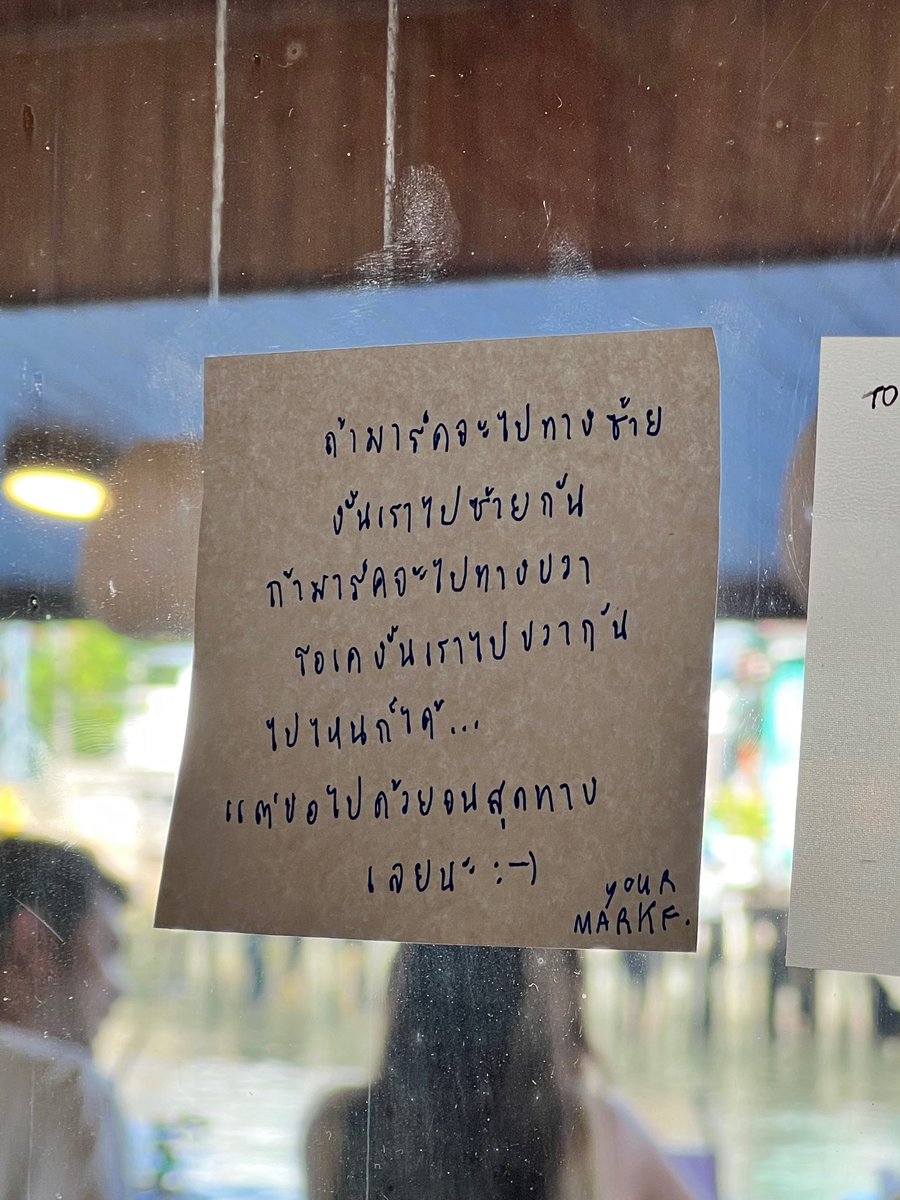 ถ้ามาร์คจะไปทางซ้าย
งั้นเราไปซ้ายกัน
ถ้ามาร์คจะไปทางขวา
โอเคงั้นเราไปขวากัน
ไปไหนก็ได้...
แต่ขอไปด้วยจนสุดทาง
เลยนะ :-)
YOUR
MARKF.
TO